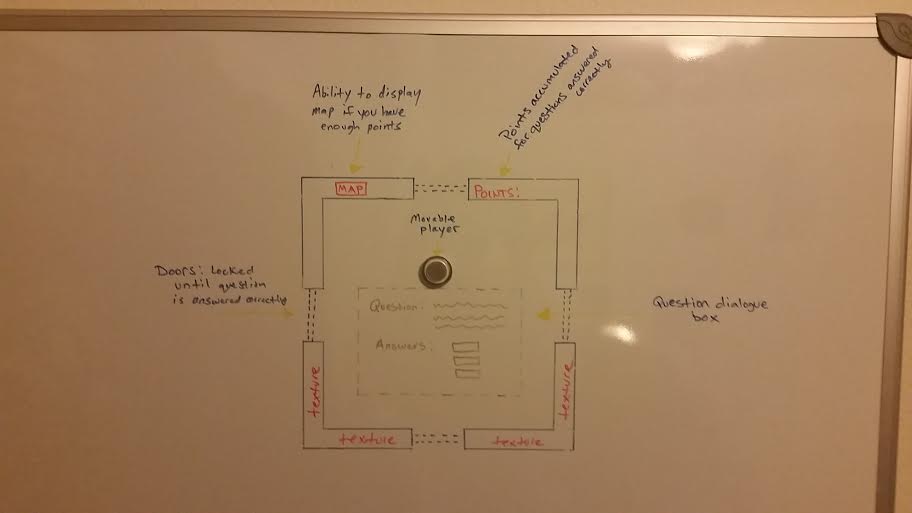 Ability to display
map if you have
enough points
Points accumulated
for questions answered
correctly
MAP
POINTS:
Movable
player
Doors: Locked
until question
is answered correctly
Question:
Answers:
Question dialogue
box
texture
texture
texture
texture